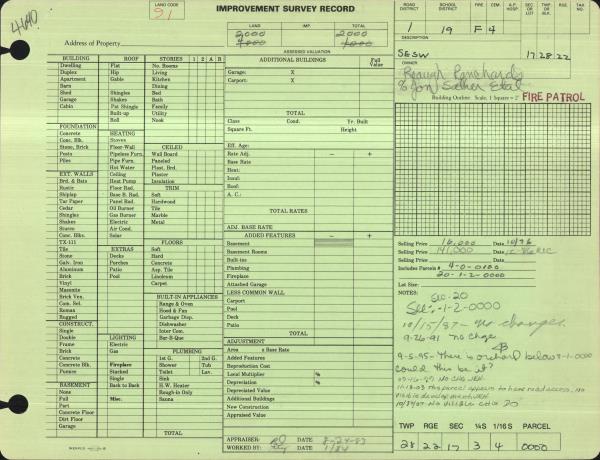 4690
LAND CODE
91
IMPROVEMENT SURVEY RECORD
LAND IMP. TOTAL
2,000 2000
ASSESSED VALUATION
Address of Property
ROAD DISTRICT SCHOOL DISTRICT FIRE CEM. A.P. HOSP. SEC OR LOT TWP OR BLK. RGE. TAX NO.
1 19 F 4
DESCRIPTION
SESW 17.28.22
OWNER
% Jon Sather Etal
Building Outline Scale, 1 Square = 2'
FIRE PATROL
BUILDING ROOF STORIES 1 2 A B
Dwelling Flat No. Rooms
Duplex Hip Living
Apartment Gable Kitchen
Barn Dining
Shed Shingles Bed
Garage Shakes Bath
Cabin Pat Shingle Family
Built-up Utility
Roll Nook
FOUNDATION
Concrete HEATING
Conc. Blk. Stoves
Stone, Brick Floor-Wall CEILED
Posts Pipeless Furn. Wall Board
Piles Pipe Furn. Paneled
Hot Water Plast. Brd.
EXT. WALLS Ceiling Plaster
Brd. & Bats Heat Pump Insulation
Rustic Floor Rad. TRIM
Shiplap Base B. Rad. Soft
Tar Paper Panel Rad. Hardwood
Cedar Oil Burner Tile
Shingles Gas Burner Marble
Shakes Electric Metal
Stucco Air Cond.
Conc. Blks. Solar
TX-111 FLOORS
Tile EXTRAS Soft
Stone Decks Hard
Galv. Iron Porches Concrete
Aluminum Patio Asp. Tile
Brick Pool Linoleum
Vinyl Carpet
Masonite
Brick Ven. BUILT-IN APPLIANCES
Com. Sel. Range & Oven
Roman Hood & Fan
Rugged Garbage Disp.
CONSTRUCT. Dishwasher
Single Inter Com.
Double LIGHTING Bar-B-Que
Frame Electric
Brick Gas PLUMBING
Concrete 1st G. 2nd G.
Concrete Blk. Fireplace Shower Tub
Pumice Stacked Toilet Lav.
Single Sink
BASEMENT Back to Back H.W. Heater
None Rough-in Only
Full Misc. Sauna
Part
Concrete Floor
Dirt Floor
Garage TOTAL
ADDITIONAL BUILDINGS Full Value
Garage: X
Carport: X
TOTAL
Class Cond. Yr. Built
Square Ft. Height
Eff. Age:
Rate Adj. − +
Base Rate
Heat:
Insul:
Roof:
A. C.:
TOTAL RATES
ADJ. BASE RATE
ADDED FEATURES − +
Basement
Basement Rooms
Built-ins
Plumbing
Fireplace
Attached Garage
LESS COMMON WALL
Carport
Pool
Deck
Patio
TOTAL
ADJUSTMENT
Area x Base Rate
Added Features
Reproduction Cost
Local Multiplier %
Depreciation %
Depreciated Value
Additional Buildings
New Construction
Appraised Value
APPRAISER: DATE 8-24-83
WORKED BY: DATE 1/84
Selling Price 16,000 Date 10/76
Selling Price 141,000 Date
Selling Price Date
Includes Parcels 4-0-0100
20-1-2-0000
Lot Size:
NOTES: SEC-20
See: 1-2-0000
10/15/87 - no changes
9-26-91 no chge
9-5-95 - There is orchard below 3-1-0000
could this be it?
TWP RGE SEC ¼S 1/16 S PARCEL
28 22 17 3 4 0000